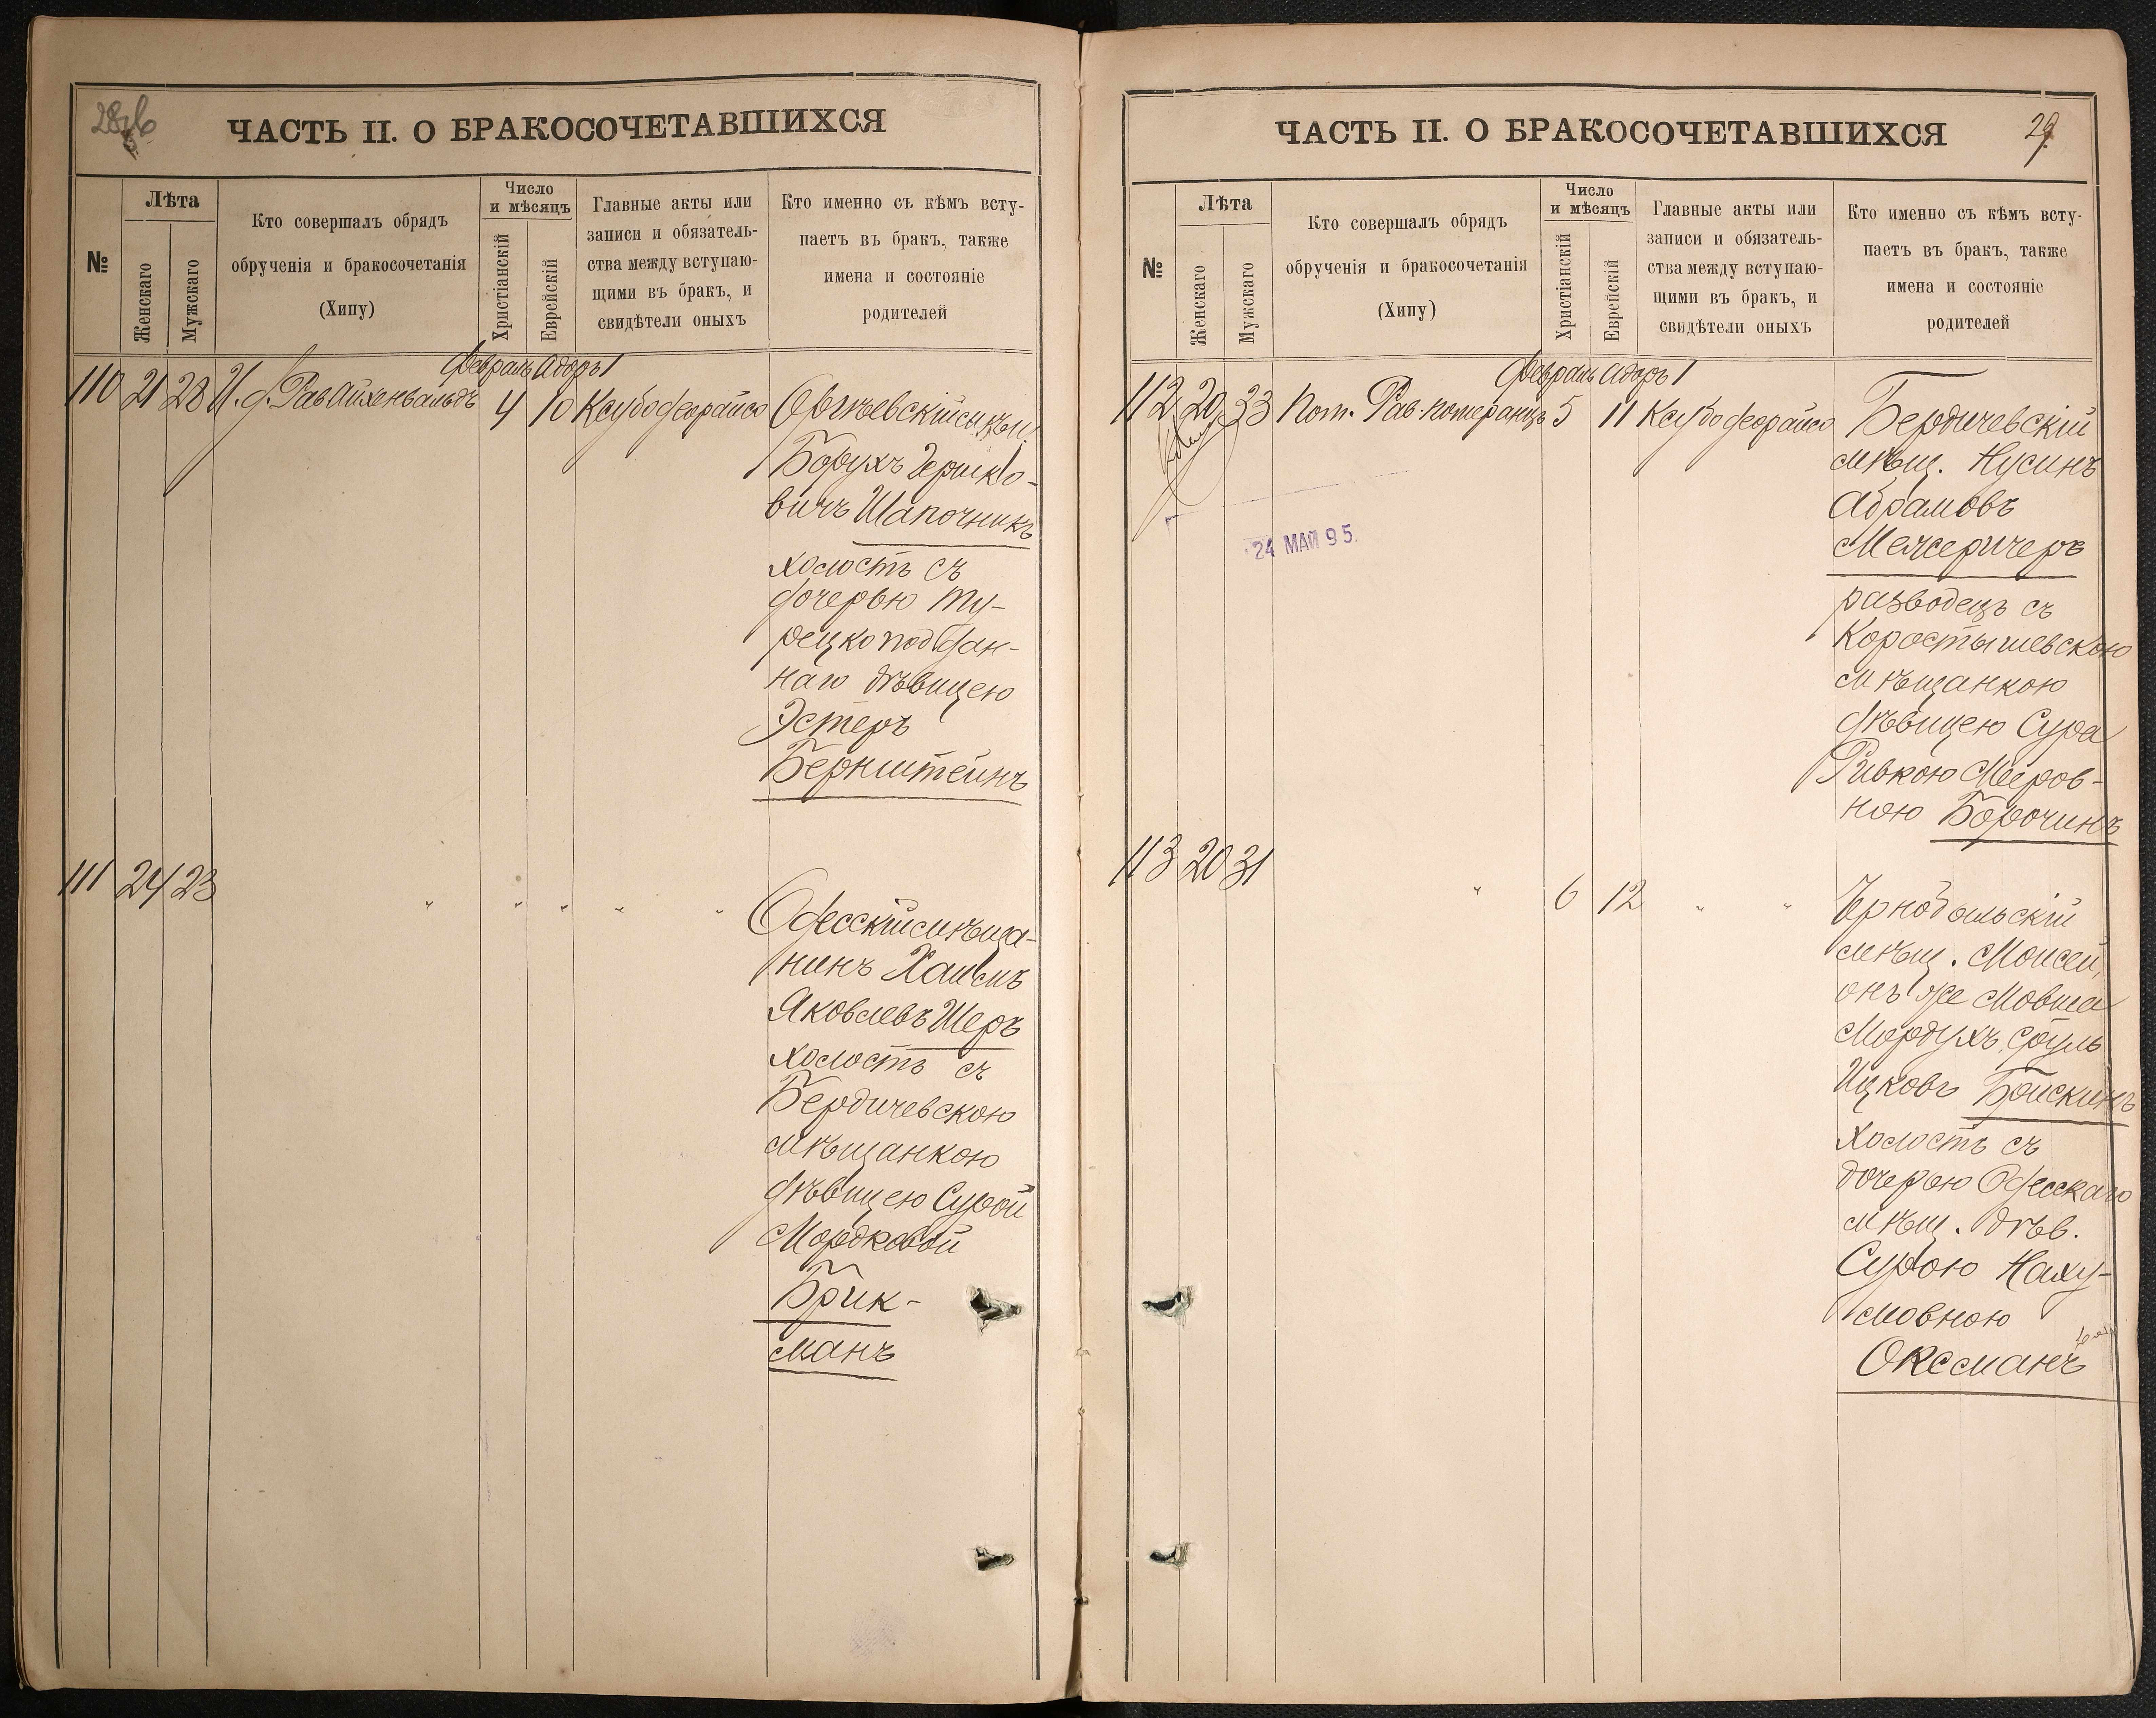 ЧАСТЬ II. О БРАКОСОЧЕТАВШИХСЯ
№
Лѣта
Женскаго
Мужскаго
Кто совершалъ обрядъ
обрученія и бракосочетанія
(Хипу)
Число
и мѣсяцъ
Христіанскій
Еврейскій
Главные акты или
записи и обязатель-
ства между вступаю-
щими въ бракъ, и
свидѣтели оныхъ
Кто именно съ кѣмъ всту-
паетъ въ бракъ, также
имена и состояніе
родителей
Февраль Адоръ 1
110 21 28 И. д. Рав Айхенвальдъ 4 10 Ксубо деорайсо
Оргѣевскій мѣщ.
Борухъ Гершко-
вичъ Шапочникъ
холостъ съ
дочерью ту-
рецко подъдан-
наго дѣвицею
Эстеръ
Бернштейнъ
111 24 23 " " " " "
Одесскій мѣща-
нинъ Хаимъ
Яковлевъ Шеръ
холостъ съ
Бердичевскою
мѣщанкою
дѣвицею Сурой
Мордковой
Брик-
манъ
ЧАСТЬ II. О БРАКОСОЧЕТАВШИХСЯ
29
№
Лѣта
Женскаго
Мужскаго
Кто совершалъ обрядъ
обрученія и бракосочетанія
(Хипу)
Число
и мѣсяцъ
Христіанскій
Еврейскій
Главные акты или
записи и обязатель-
ства между вступаю-
щими въ бракъ, и
свидѣтели оныхъ
Кто именно съ кѣмъ всту-
паетъ въ бракъ, также
имена и состояніе
родителей
Февраль Адоръ 1
112 20 33 Пом. Рав. Померанцъ 5 11 Ксубо деорайсо
24 МАЙ 95.
Бердичевскій
мѣщ. Нусинъ
Абрамовъ
Межеричеръ
разводецъ съ
Коростышевскою
мѣщанкою
дѣвицею Сура
Ривкою Мееров-
ною Борочинъ
113 20 31 " 6 12 " "
Чернобыльскій
мѣщ. Моисей,
онъ же Мовша
Мордухъ Сруль
Ицковъ Броискинъ
холостъ съ
дочерью Одесскаго
мѣщ. дѣв.
Сурою Наху-
мовною
Оксманъ